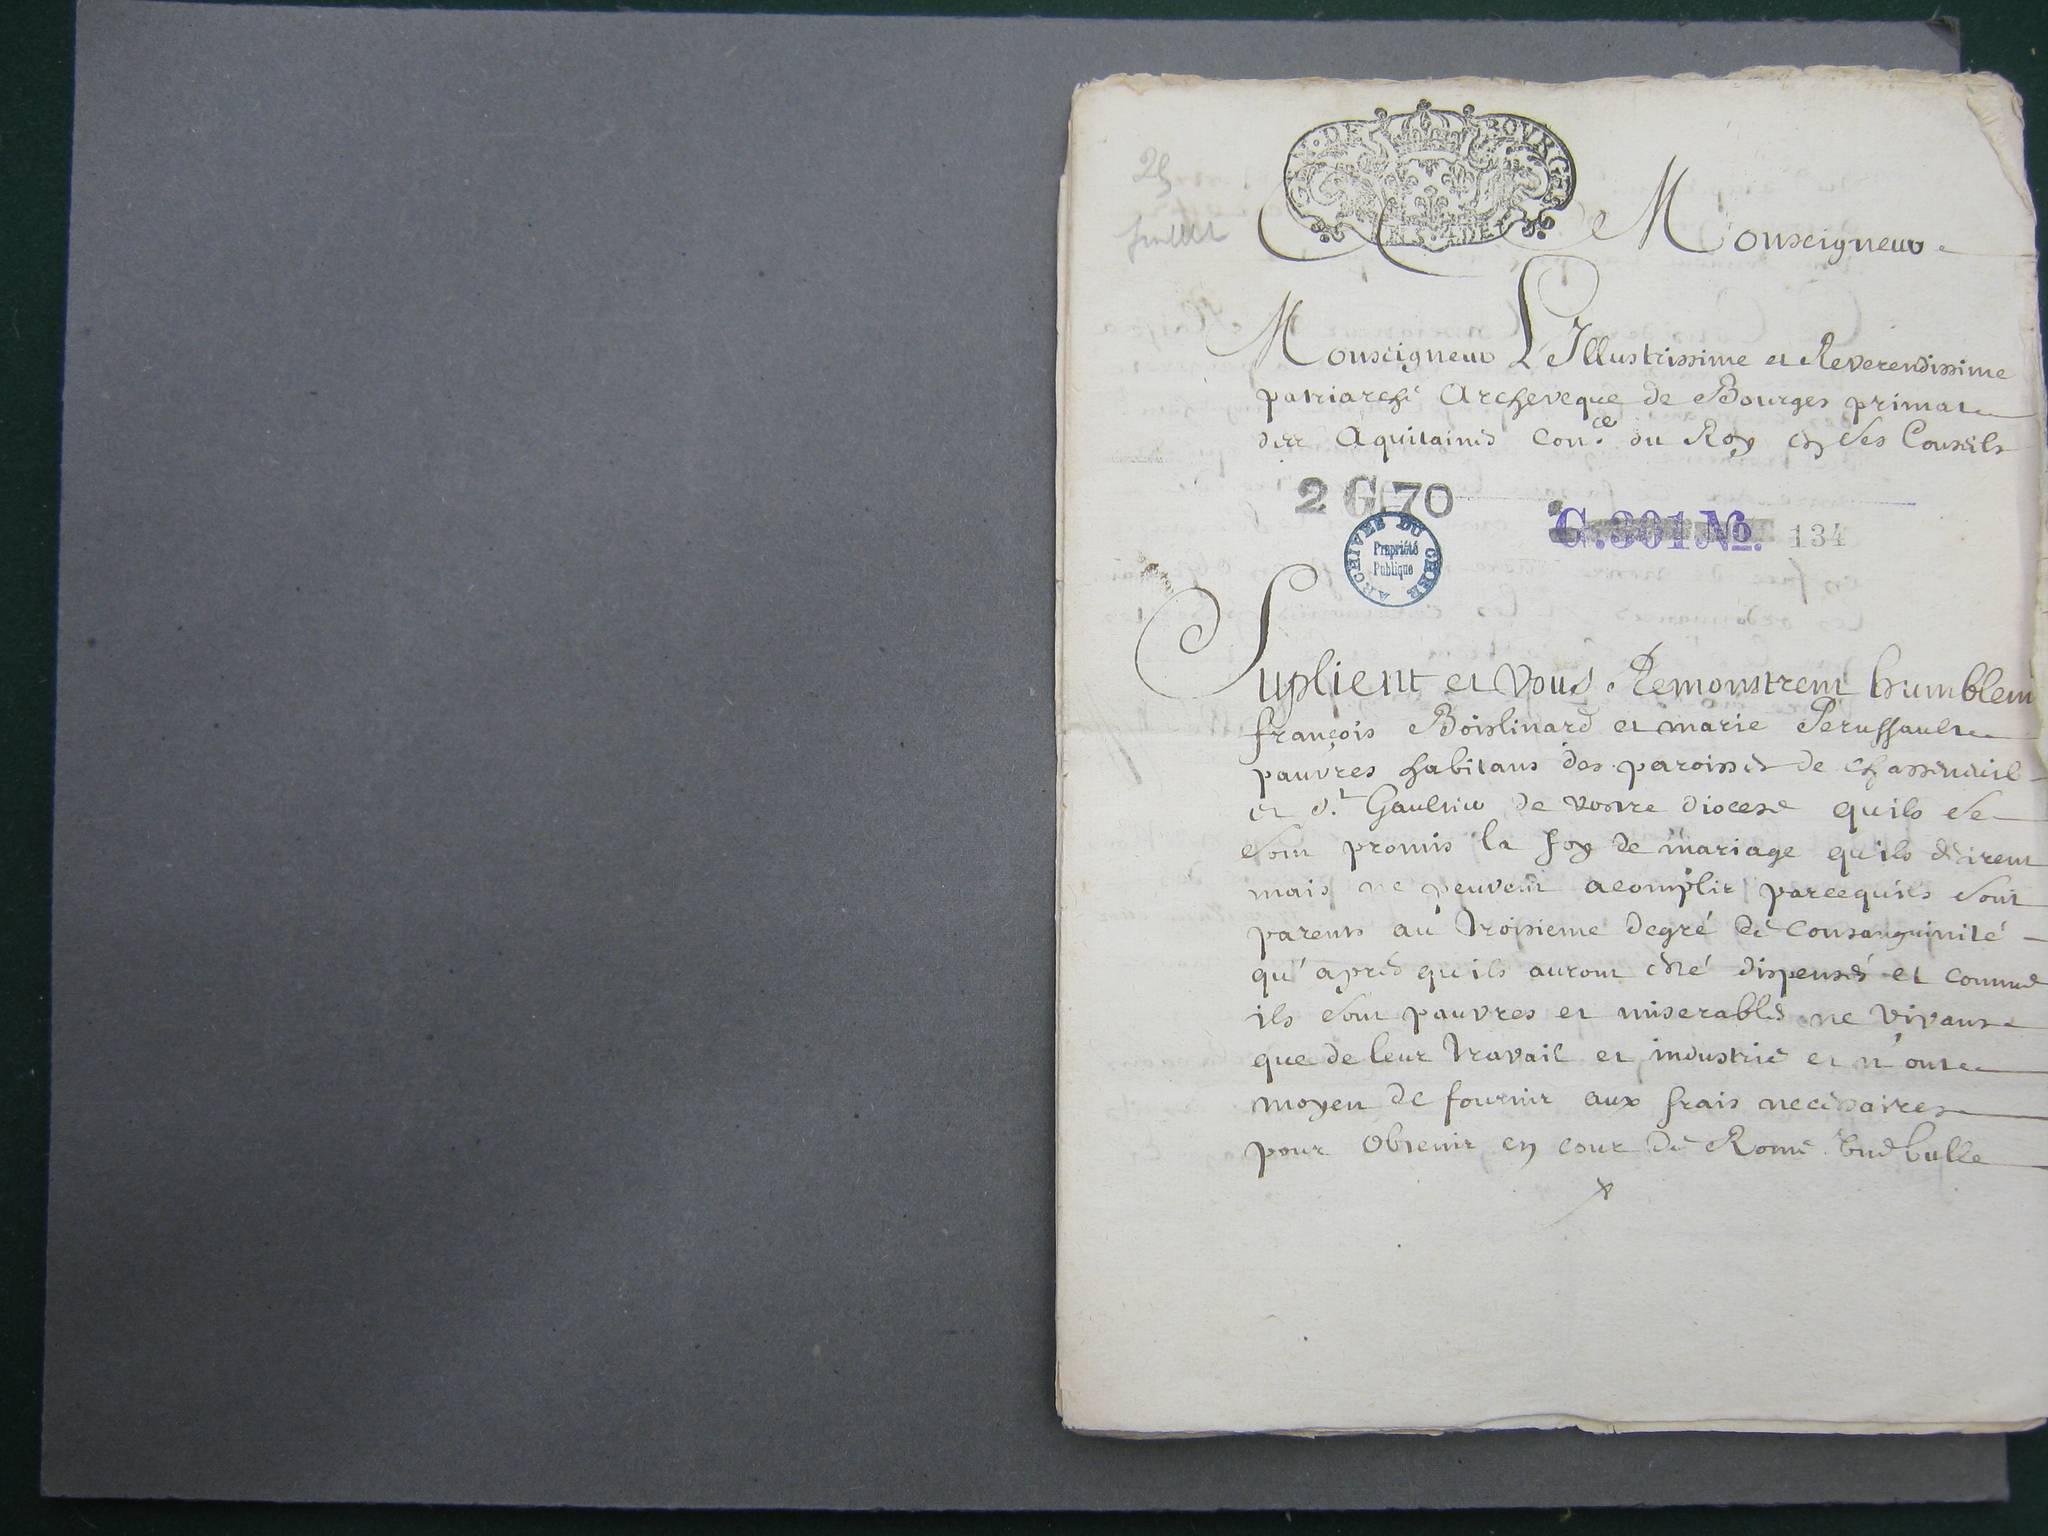 GEN. DE BOURGES
25
Monseigneur
Monseigneur L'Illustrissime et Reverendissime
patriarche Archeveque de Bourges primat
des Aquitaines con.er du Roy en ses Conseils
2 G 70
G.301 No. 134
ARCHIVES DU CHER
Propriété
Publique
Suplient et Vous Remonstrent humblem
françois Boislinard et marie Perussault
pauvres habitans des paroisses de chasseneuil
et St. Gaultier de vostre diocese quils se
sont promis la foy de mariage quils desirent
mais ne peuvent acomplir parcequils sont
parents au troisieme degré de Consanguinité
qu'aprés quils auront esté dispensés et comme
ils sont pauvres et miserables ne vivans
que de leur travail et industrie et n'ont
moyen de fournir aux frais necessaires
pour obtenir en cour de Rome une bulle